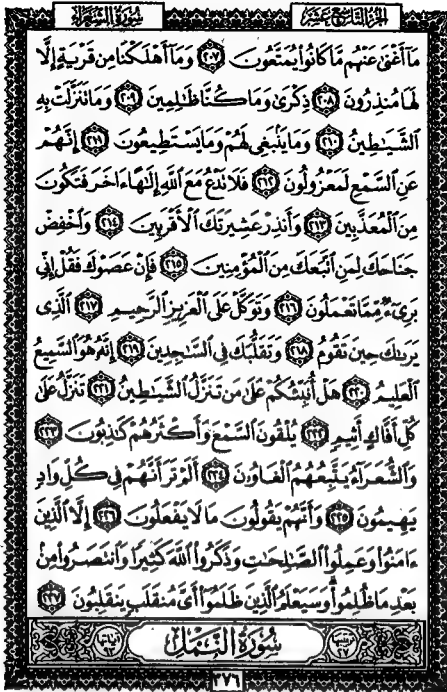 سُورَةُ الشُّعَرَاءِ الجزء التاسع عشر
مَآ أَغْنَىٰ عَنْهُم مَّا كَانُوا۟ يُمَتَّعُونَ ٢٠٧ وَمَآ أَهْلَكْنَا مِن قَرْيَةٍ إِلَّا
لَهَا مُنذِرُونَ ٢٠٨ ذِكْرَىٰ وَمَا كُنَّا ظَٰلِمِينَ ٢٠٩ وَمَا تَنَزَّلَتْ بِهِ
ٱلشَّيَٰطِينُ ٢١٠ وَمَا يَنۢبَغِى لَهُمْ وَمَا يَسْتَطِيعُونَ ٢١١ إِنَّهُمْ
عَنِ ٱلسَّمْعِ لَمَعْزُولُونَ ٢١٢ فَلَا تَدْعُ مَعَ ٱللَّهِ إِلَٰهًا ءَاخَرَ فَتَكُونَ
مِنَ ٱلْمُعَذَّبِينَ ٢١٣ وَأَنذِرْ عَشِيرَتَكَ ٱلْأَقْرَبِينَ ٢١٤ وَٱخْفِضْ
جَنَاحَكَ لِمَنِ ٱتَّبَعَكَ مِنَ ٱلْمُؤْمِنِينَ ٢١٥ فَإِنْ عَصَوْكَ فَقُلْ إِنِّى
بَرِىٓءٌ مِّمَّا تَعْمَلُونَ ٢١٦ وَتَوَكَّلْ عَلَى ٱلْعَزِيزِ ٱلرَّحِيمِ ٢١٧ ٱلَّذِى
يَرَىٰكَ حِينَ تَقُومُ ٢١٨ وَتَقَلُّبَكَ فِى ٱلسَّٰجِدِينَ ٢١٩ إِنَّهُۥ هُوَ ٱلسَّمِيعُ
ٱلْعَلِيمُ ٢٢٠ هَلْ أُنَبِّئُكُمْ عَلَىٰ مَن تَنَزَّلُ ٱلشَّيَٰطِينُ ٢٢١ تَنَزَّلُ عَلَىٰ
كُلِّ أَفَّاكٍ أَثِيمٍ ٢٢٢ يُلْقُونَ ٱلسَّمْعَ وَأَكْثَرُهُمْ كَٰذِبُونَ ٢٢٣
وَٱلشُّعَرَآءُ يَتَّبِعُهُمُ ٱلْغَاوُۥنَ ٢٢٤ أَلَمْ تَرَ أَنَّهُمْ فِى كُلِّ وَادٍ
يَهِيمُونَ ٢٢٥ وَأَنَّهُمْ يَقُولُونَ مَا لَا يَفْعَلُونَ ٢٢٦ إِلَّا ٱلَّذِينَ
ءَامَنُوا۟ وَعَمِلُوا۟ ٱلصَّٰلِحَٰتِ وَذَكَرُوا۟ ٱللَّهَ كَثِيرًا وَٱنتَصَرُوا۟ مِنۢ
بَعْدِ مَا ظُلِمُوا۟ وَسَيَعْلَمُ ٱلَّذِينَ ظَلَمُوٓا۟ أَىَّ مُنقَلَبٍ يَنقَلِبُونَ ٢٢٧
سُورَةُ النَّمْلِ
٣٧٦